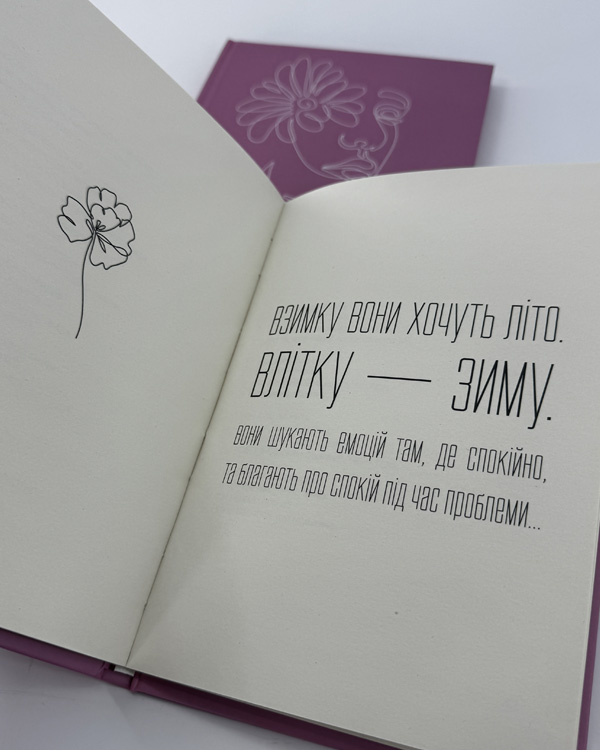 ВЗИМКУ ВОНИ ХОЧУТЬ ЛІТО.
ВЛІТКУ — ЗИМУ.
ВОНИ ШУКАЮТЬ ЕМОЦІЙ ТАМ, ДЕ СПОКІЙНО,
ТА БЛАГАЮТЬ ПРО СПОКІЙ ПІД ЧАС ПРОБЛЕМИ...